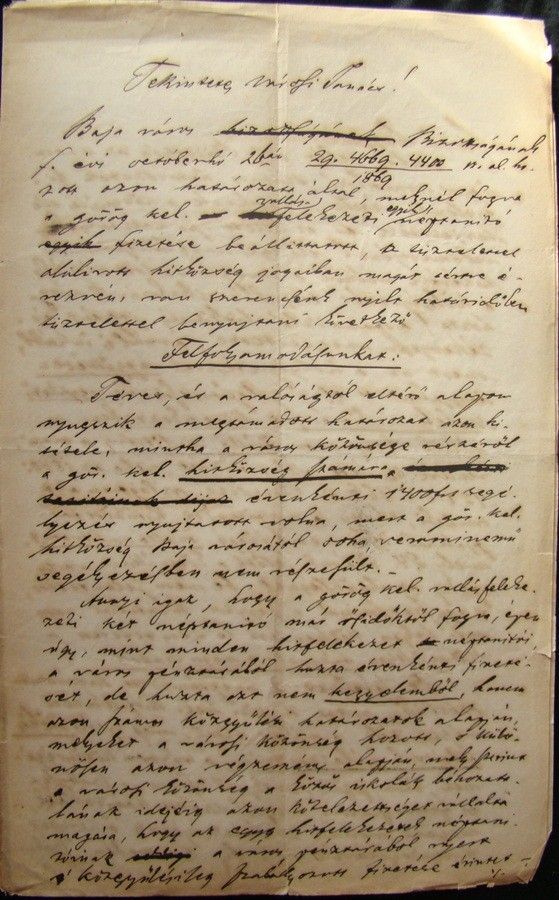 Tekintetes városi Tanács!
Baja város Bizottságának
f. évi októberhó 26án 29. 4669. 4400 n. al. ho-
1869
zott azon határozata által, melynél fogva
a görög kel. vallás felekezeti egyik néptanitó
fizetése beállittatott, a tisztelettel
alulirott hitközség jogaiban magát sértve é-
rezvén, van szerencsénk nyilt határidőben
tisztelettel benyujtani következő
Felfolyamodásunkat:
Téves, és a valóságtól eltérő alapon
nyugszik a megtámadott határozat azon ki-
tétele, mintha a város közönsége részéről
a gör. kel. hitközség számára
évenkénti 1400 frt segé-
lyezés nyujtatott volna, mert a gör. kel.
hitközség Baja városától soha, semminemű
segélyezésben nem részesült. –
Annyi igaz, hogy a görög kel. vallásfeleke-
zeti két néptanitó már ősidőktől fogva, épen
úgy, mint minden hitfelekezet néptanitói
a város pénztárából huzta évenkénti fizeté-
sét, de huzta azt nem kegyelemből, hanem
azon számos közgyűlési határozatok alapján,
melyeket a városi közönség hozott, s külö-
nösen azon végzemény alapján, mely szerint
a városi közönség a közös iskolák behozata-
lának idejéig azon kötelezettséget vállalta
magára, hogy az egyes hitfelekezetek néptani-
tóinak a város pénztárából nyert
s közgyűlésileg szabályozott fizetése érintet-